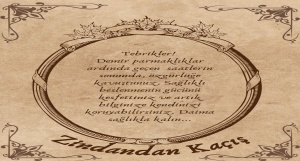 Tebrikler!
Demir parmaklıklar
ardında geçen saatlerin
sonunda, özgürlüğe
kavuştunuz. Sağlıklı
beslenmenin gücünü
keşfettiniz ve artık
bilginizle kendinizi
koruyabilirsiniz. Daima
sağlıkla kalın...
Zindandan Kaçış